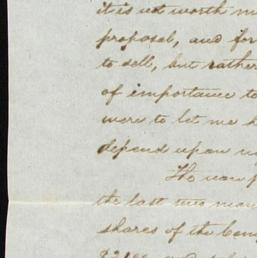 it is not worth m
proposal, and for
to sell, but rather
of importance to
were to let me h
depend upon m
The now p
the last two mon
shares of the Com